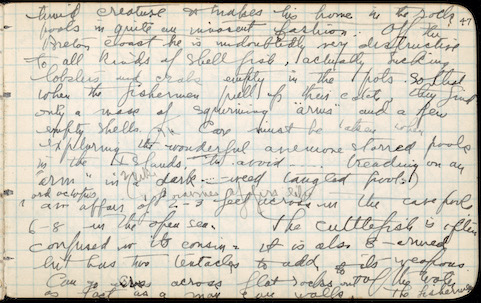 timid creature & makes his home in the rock 47
pools in quite an innocent fashion. Off the
Breton coast he is undoubtedly very destructive
to all kinds of shell fish, actually sucking
lobsters and crabs empty in the pots. So that
when the fishermen pull up their catch they find
only a mass of squirming "arms" and a few
empty shells. Care must be taken when
exploring the wonderful anemone starred pools
in the Islands to avoid treading on an
"arm" in a dark weed tangled pool.)
an affair of 2-3 feet across in the case for
6-8 in the open sea. The cuttlefish is often
confused with its cousin. It is also 8-armed
but has two tentacles to add to its weapons.
Can go across flat rocks out of the water
as fast as a man can walk. The fishermen